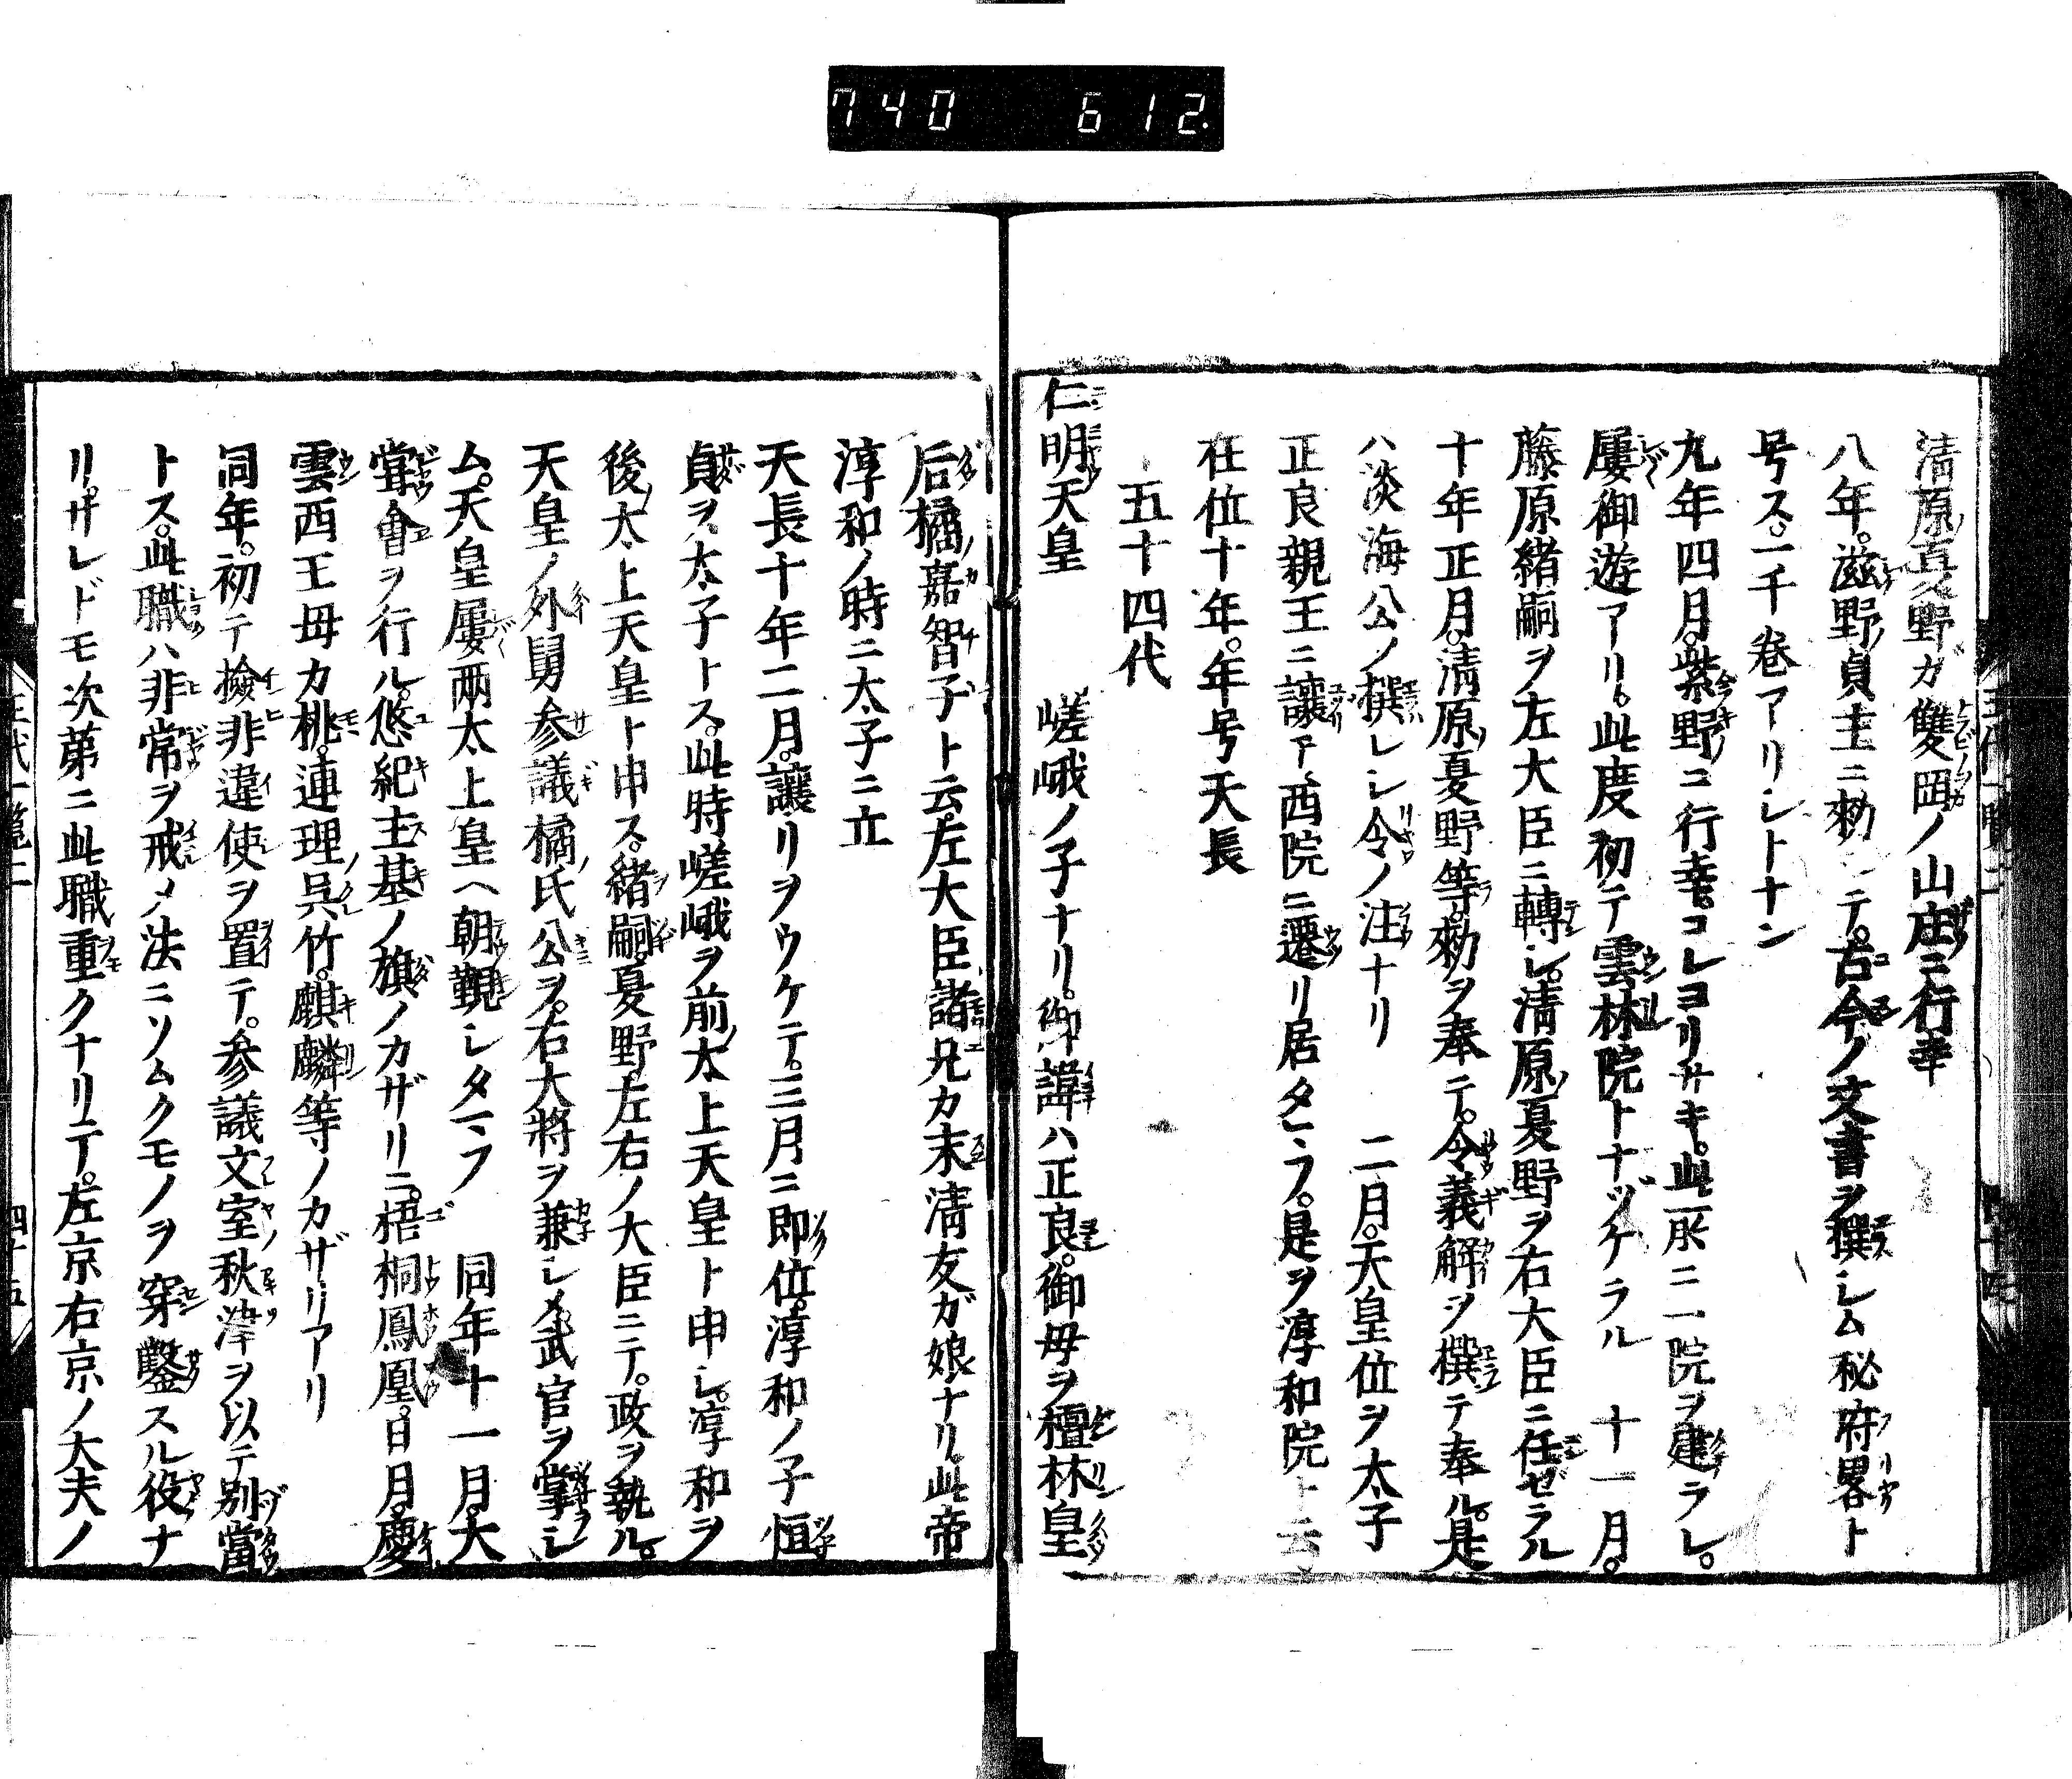 740 612.
清原夏野ガ雙岡ノ山庄ニ行幸
八年。滋野貞主ニ勅シテ。古今ノ文書ヲ撰シム秘府畧ト
号ス。一千巻アリシトナン
九年四月。紫野ニ行幸。コレヨリサキ。此所ニ一院ヲ建ラレ。
屢御遊アリ。此度初テ雲林院トナヅケラル 十一月。
藤原緒嗣ヲ左大臣ニ轉シ。清原夏野ヲ右大臣ニ任ゼラル
十年正月。清原夏野等。勅ヲ奉テ。令義解ヲ撰テ奉ル。是
ハ淡海公ノ撰レシ令ノ注ナリ 二月。天皇位ヲ太子
正良親王ニ讓テ、西院ニ遷リ居タマフ。是ヲ淳和院ト云。
在位十年。年号天長
五十四代
仁明天皇 嵯峨ノ子ナリ。御諱ハ正良。御母ヲ檀林皇
后橘嘉智子ト云。左大臣諸兄カ末清友ガ娘ナリ。此帝
淳和ノ時ニ太子ニ立
天長十年二月。讓リヲウケテ。三月ニ即位。淳和ノ子恒
貞ヲ太子トス。此時嵯峨ヲ前太上天皇ト申シ。淳和ヲ
後太上天皇ト申ス。緒嗣。夏野。左右ノ大臣ニテ。政ヲ執ル。
天皇ノ外舅参議橘氏公ヲ。右大將ヲ兼シメ。武官ヲ掌シ
ム。天皇屢兩太上皇ヘ朝覲シタマフ 同年十一月。大
甞會ヲ行ル。悠紀主基ノ旗ノカザリニ。梧桐鳳凰。日月。慶
雲西王母カ桃。連理呉竹。麒麟等ノカザリアリ
同年。初テ撿非違使ヲ置テ。参議文室秋津ヲ以テ別當
トス。此職ハ非常ヲ戒メ法ニソムクモノヲ穿鑿スル役ナ
リ。サレドモ次第ニ此職重クナリテ。左京右京ノ大夫ノ